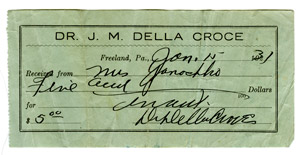 DR. J. M. DELLA CROCE
Freeland, Pa., Jan. 15 1931
Received from Mrs
Five and Dollars
for
$ 5 00 Dr Della Croce